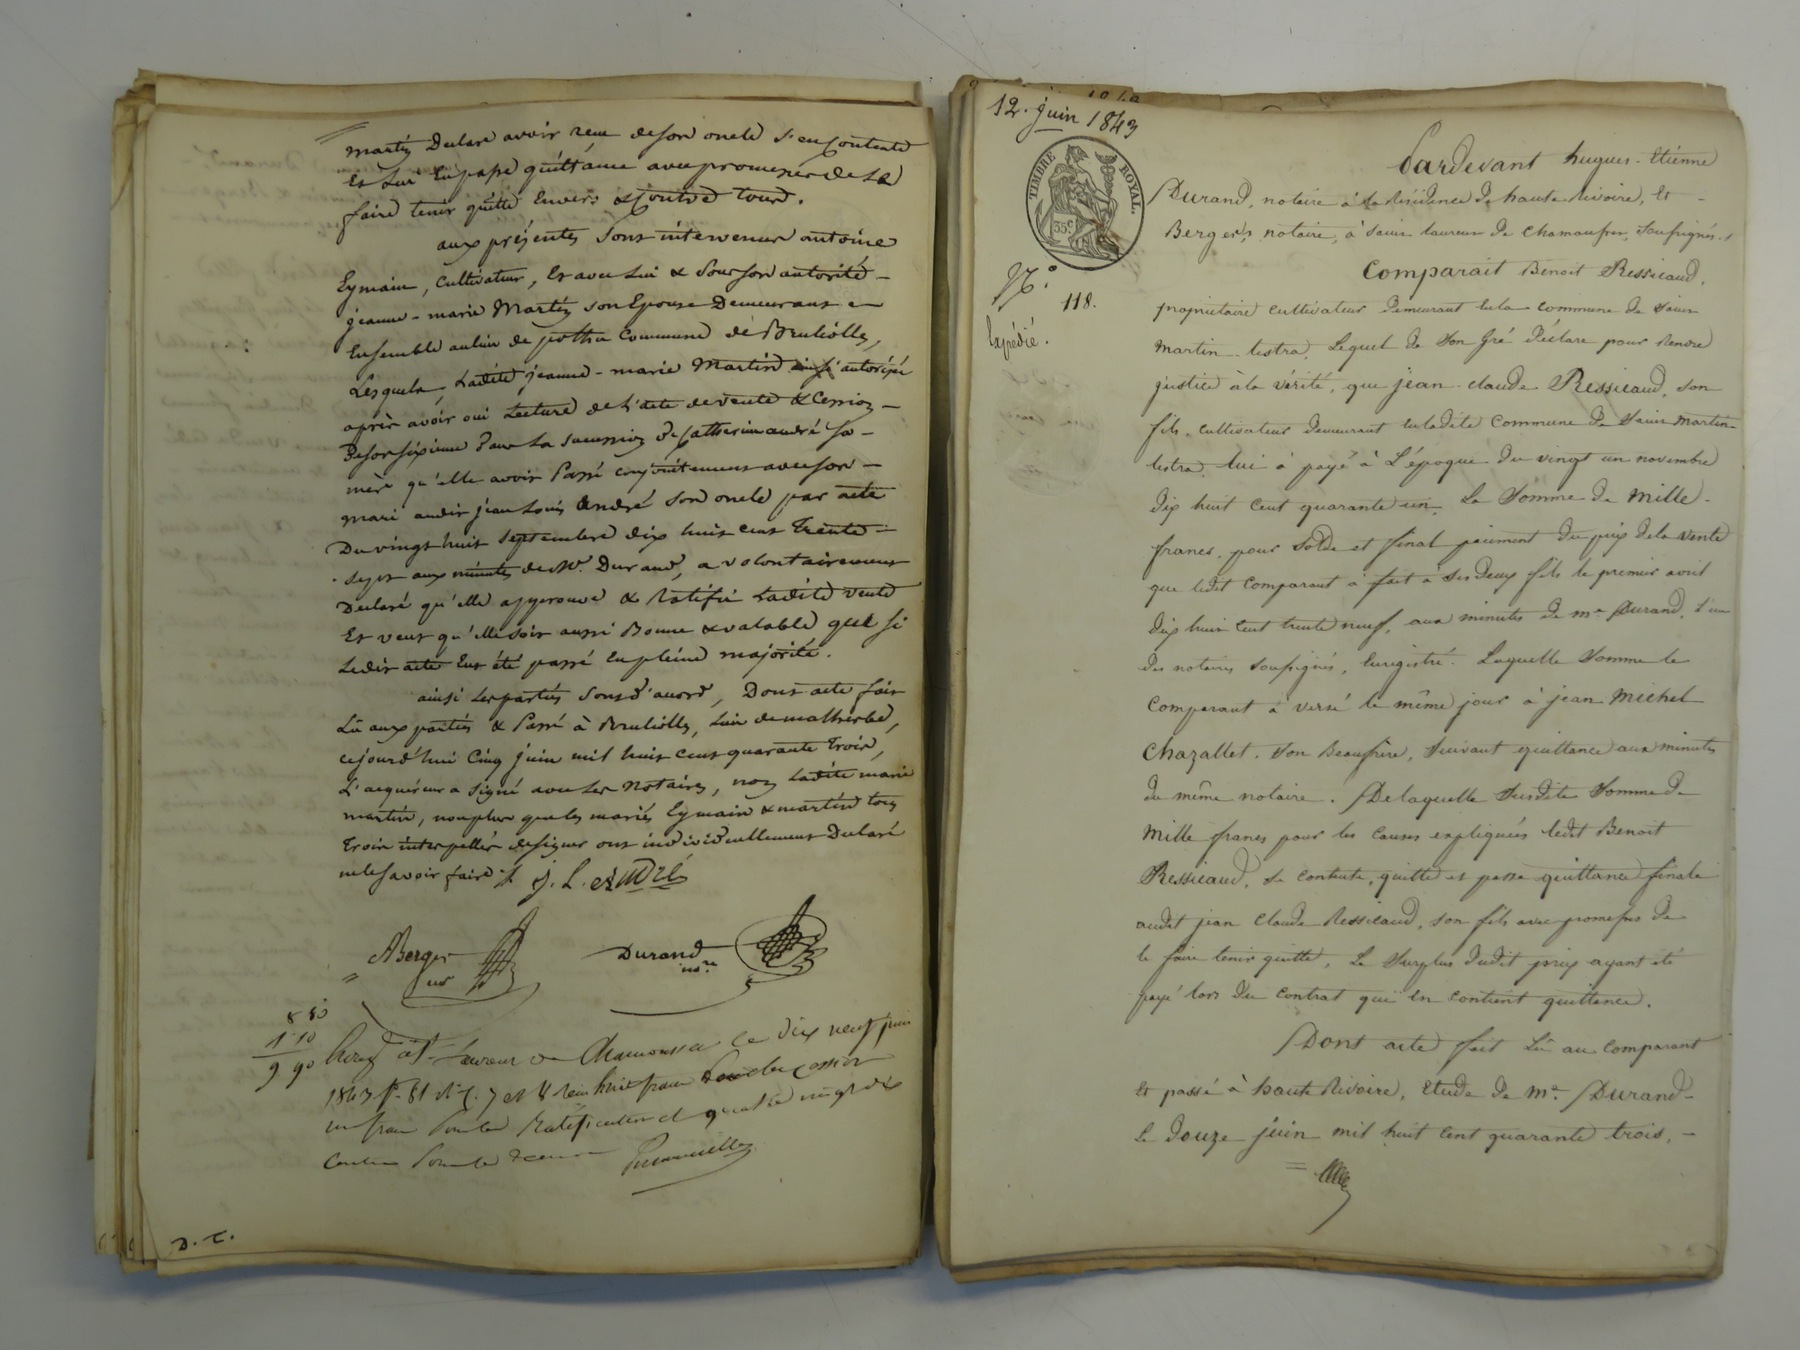 Martin Declare avoir reçu de son oncle s'en Contente
Et Lui En passe quittance avec promesse de le
faire tenir quitte Envers & Contre tous.
aux présentes Sont intervenus antoine
Eymain, Cultivateur, Et avec Lui & Sous son autorité -
jeanne - marie Martin son Epouse Demeurant
Ensemble au lieu de commune de Brullioles,
Lesquels, Ladite jeanne - marie Martin ainsi autorisée
après avoir oui Lecture de L'acte de vente & Cession -
De son sixième Dans La succession De Catherine andré Sa -
mère qu'elle avoir Passé conjointement avec son -
mari audit jean Louis André son oncle par acte
Du vingt huit Septembre dix huit cent Trente -
sept aux minutes de Me. Durand, a volontairement
Declaré qu'elle approuve & Ratifie Ladite vente
Et veut qu'elle soit aussi Bonne & valable que si
Ledit acte Eut été passé En pleine majorité.
ainsi Les parties Sont D'accord, Dont acte fait
Lû aux parties & Passé à Brullioles, Lieu de malherbe,
cejourd'hui Cinq juin mil huit cent quarante Trois,
L'acquéreur a signé avec Les Notaires, non Ladite marie
martin, non plus que les mariés Eymain & martin tous
Trois interpellés de signer ont individuellement Déclaré
ne le savoir faire ./.
J. L. André
Berger
nre
Durand
nore.
8 80
1 10
9 90
à St. Laurent de Chamousset le dix neuf juin
1843 fo. 81 Ro. C. 7 et 8 reçu huit francs cession
un franc Pour la Ratification et quatre vingt dix
centimes Pour le décime
D. C.
12. juin 1843
TIMBRE ROYAL.
35 c.
No.
118.
Expédié.
Pardevant hugues - Etienne
Durand, notaire à la Résidence De haute Rivoire, Et -
Berger, notaire, à Saint Laurent De Chamousset, Soussignés.
Comparait Benoit Ressicaud,
propriétaire cultivateur Demeurant En la commune De Saint
Martin - Lestra, Lequel De Son Gré Déclare pour Rendre
justice à la vérité, que jean - claude Ressicaud, Son
fils, cultivateur demeurant En ladite Commune De Saint Martin -
Lestra, lui à payé à L'époque Du vingt un novembre
Dix huit Cent quarante un, La Somme De Mille -
francs, pour Solde et final paiement Du prix De la vente
que ledit Comparant à fait à Ses Deux fils le premier avril
Dix huit Cent trente neuf, aux minutes De me Durand, l'un
des notaires soussignés, Enregistré. Laquelle Somme le
Comparant à versé le même jour à jean Michel
Chazallet, Son Beaufrère, Suivant quittance aux minutes
du même notaire. De laquelle Susdite Somme De
Mille francs pour les Causes expliquées ledit Benoit
Ressicaud, Se contente, quitte et passe quittance finale
audit jean Claude Ressicaud, Son fils avec promesses De
le faire tenir quitte, Le Surplus Dudit prix ayant été
payé lors Du Contrat qui En Contient quittance.
Dont acte fait Lû au Comparant
Et passé à haute Rivoire, Etude De Me. Durand -
Le Douze juin mil huit Cent quarante trois, -